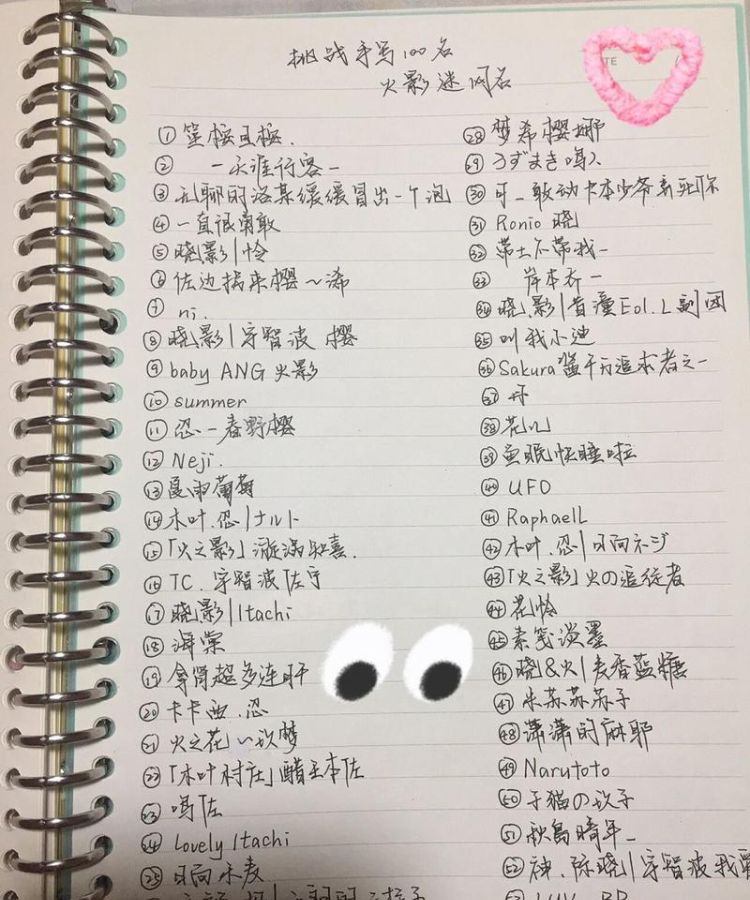 挑战手写100名
火影迷网名
①
② 一天涯行客一
③ 无聊的洛某缓缓冒出一个泡
④ 一直很勇敢
⑤ 晓影|怜
⑥ 佐边指来樱～浠
⑦ ni.
⑧ 晓影|宇智波 樱
⑨ baby ANG 火影
⑩ summer
⑪ 忍一春野樱
⑫ Neji.
⑬ 夏雨葡萄
⑭ 木叶.忍|ナルト
⑮「火之影」漩涡
⑯ TC. 宇智波佐守
⑰ 晓影|Itachi
⑱ 海棠
⑲ 拿肾超多连肝
⑳ 卡卡西.忍
㉑ 火之花~玖梦
㉒「木叶村庄」醋王本佐
㉓ 鸣佐
㉔ Lovely Itachi
㉕ 日向禾麦
㉘ 梦希樱娜
㉙ うずまき鸣人
㉚ 敢动卡本少爷弄死你
㉛ Ronio 晓
㉜ 带土不带我一
㉝ 岸本齐一
㉞ 晓.影|首潼Eol.L副团
㉟ 叫我小迪
㊱ Sakura酱千万追求者之一
㊲
㊳ 花儿
㊴ 鱼眠快睡啦
㊵ UFO
㊶ Raphaell
㊷ 木叶.忍|日向ネジ
㊸「火之影」火の追従者
㊹ 花怜
㊺ 素笺淡墨
㊻ 晓&火|麦香蓝糖
㊼ 米苏苏苏子
㊽ 潇潇的麻耶
㊾ Narutoto
㊿ 子猫の玖子
51 秋岛晴年_
52 神.际晓|宇智波我